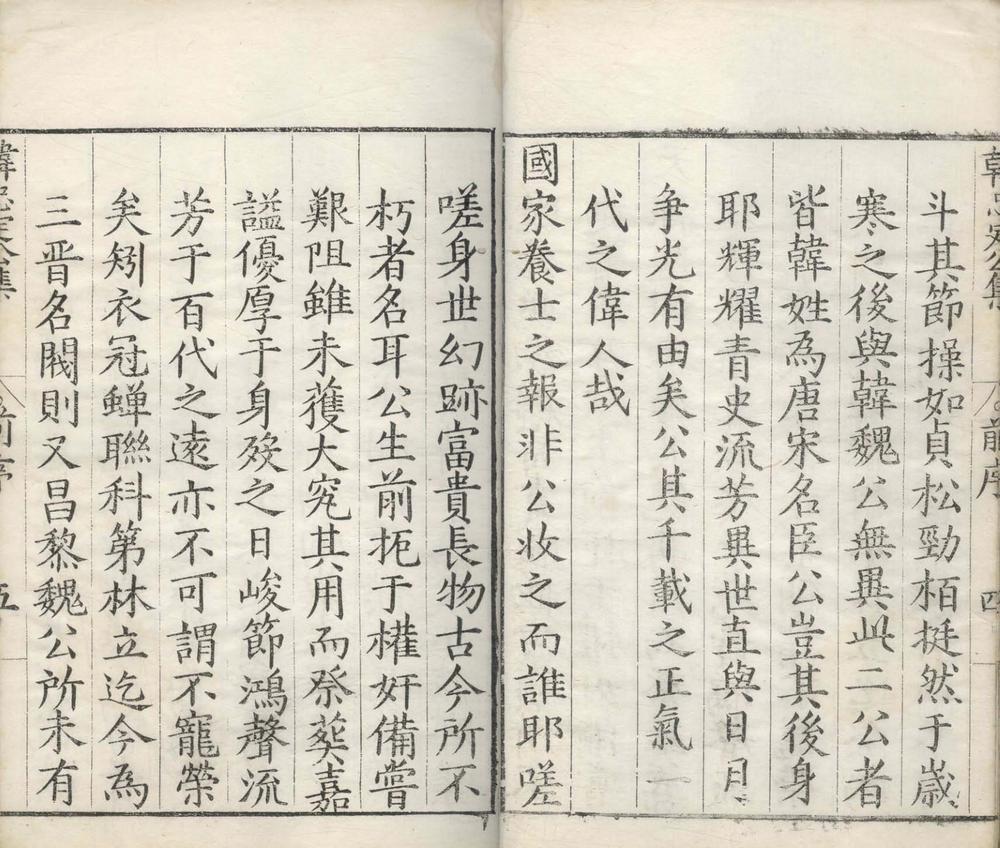 韓忠定公集 前序 四
斗其節操如貞松勁栢挺然于歲
寒之後與韓魏公無異此二公者
皆韓姓為唐宋名臣公豈其後身
耶輝耀青史流芳異世直與日月
争光有由矣公其千載之正氣一
代之偉人哉
國家養士之報非公收之而誰耶嗟
嗟身世幻跡富貴長物古今所不
朽者名耳公生前扼于權奸備嘗
艱阻雖未獲大究其用而祭葬嘉
謚優厚于身歿之日峻節鴻聲流
芳于百代之遠亦不可謂不寵榮
矣矧衣冠蟬聯科第林立迄今為
三晋名閥則又昌黎魏公所未有
韓忠定公集 前序 五